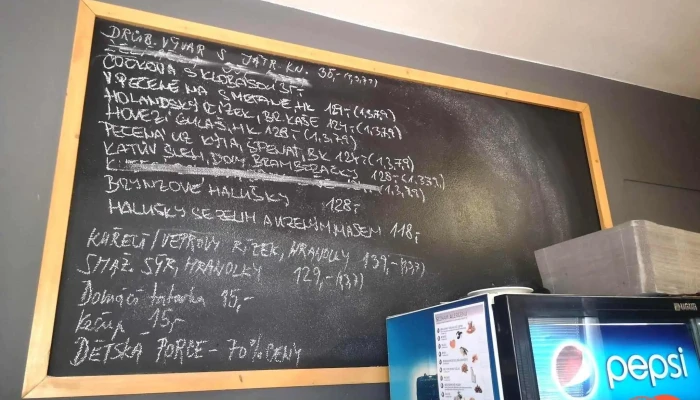 DRŮB. VÝVAR S JATR. KN. 35,- (1,3,7,9)
ČOČKOVÁ S KLOBÁSOU 35,-
VEPŘ. PEČENĚ NA SMETANĚ, HK 129,- (1,3,7,9)
HOLANDSKÝ ŘÍZEK, BR. KAŠE 124,- (1,3,7,9)
HOVĚZÍ GULÁŠ, HK 128,- (1,3,7,9)
PEČENÁ UZ. KÝTA, ŠPENÁT, BK 124,- (1,3,7,9)
KATŮV ŠLEH, DOM. BRAMBORÁČKY 128,- (1,3,7,9)
K (1,3,7,9)
BRYNZOVÉ HALUŠKY 128,-
HALUŠKY SE ZELÍM A UZENÝM MASEM 118,-
KUŘECÍ/VEPŘOVÝ ŘÍZEK, HRANOLKY 139,- (1,3,7)
SMAŽ. SÝR, HRANOLKY 129,- (1,3,7)
Domácí tatarka 15,-
Kečup 15,-
DĚTSKÁ PORCE - 70% CENY
pepsi